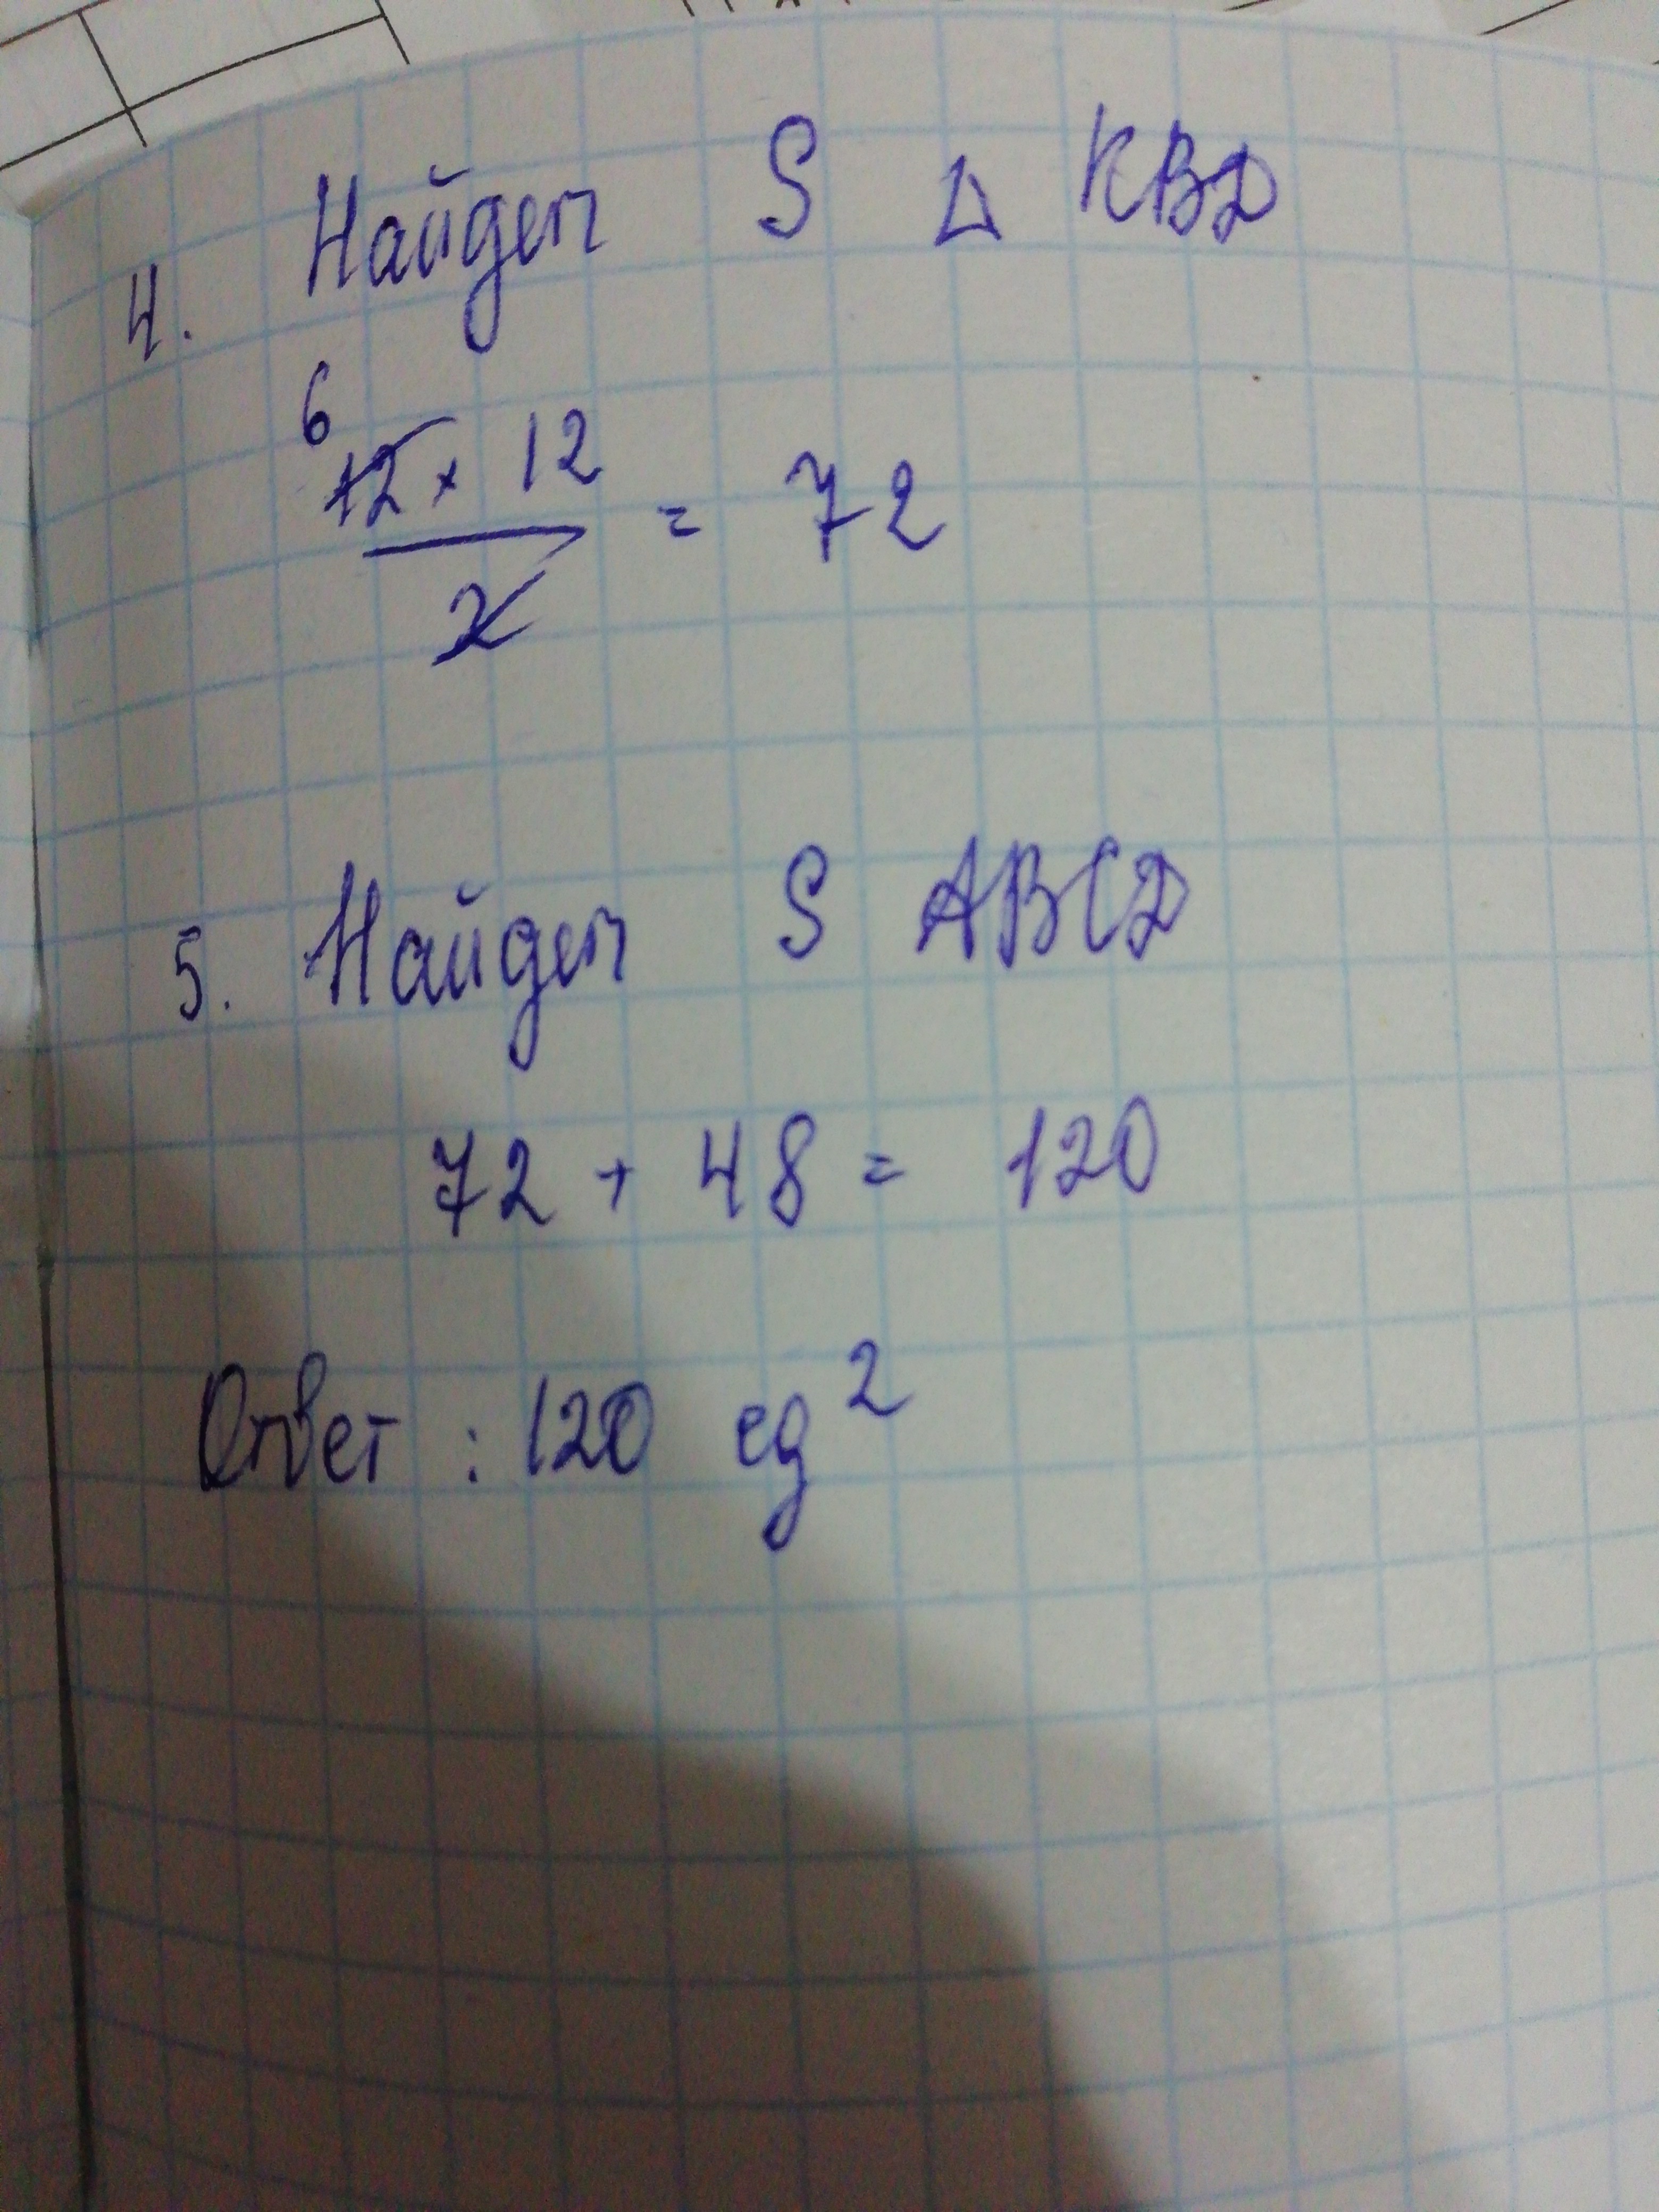 4. Найдем S Δ KBD
6
12 × 12
——— = 72
2
5. Найдем S ABCD
72 + 48 = 120
Ответ : 120 ед²